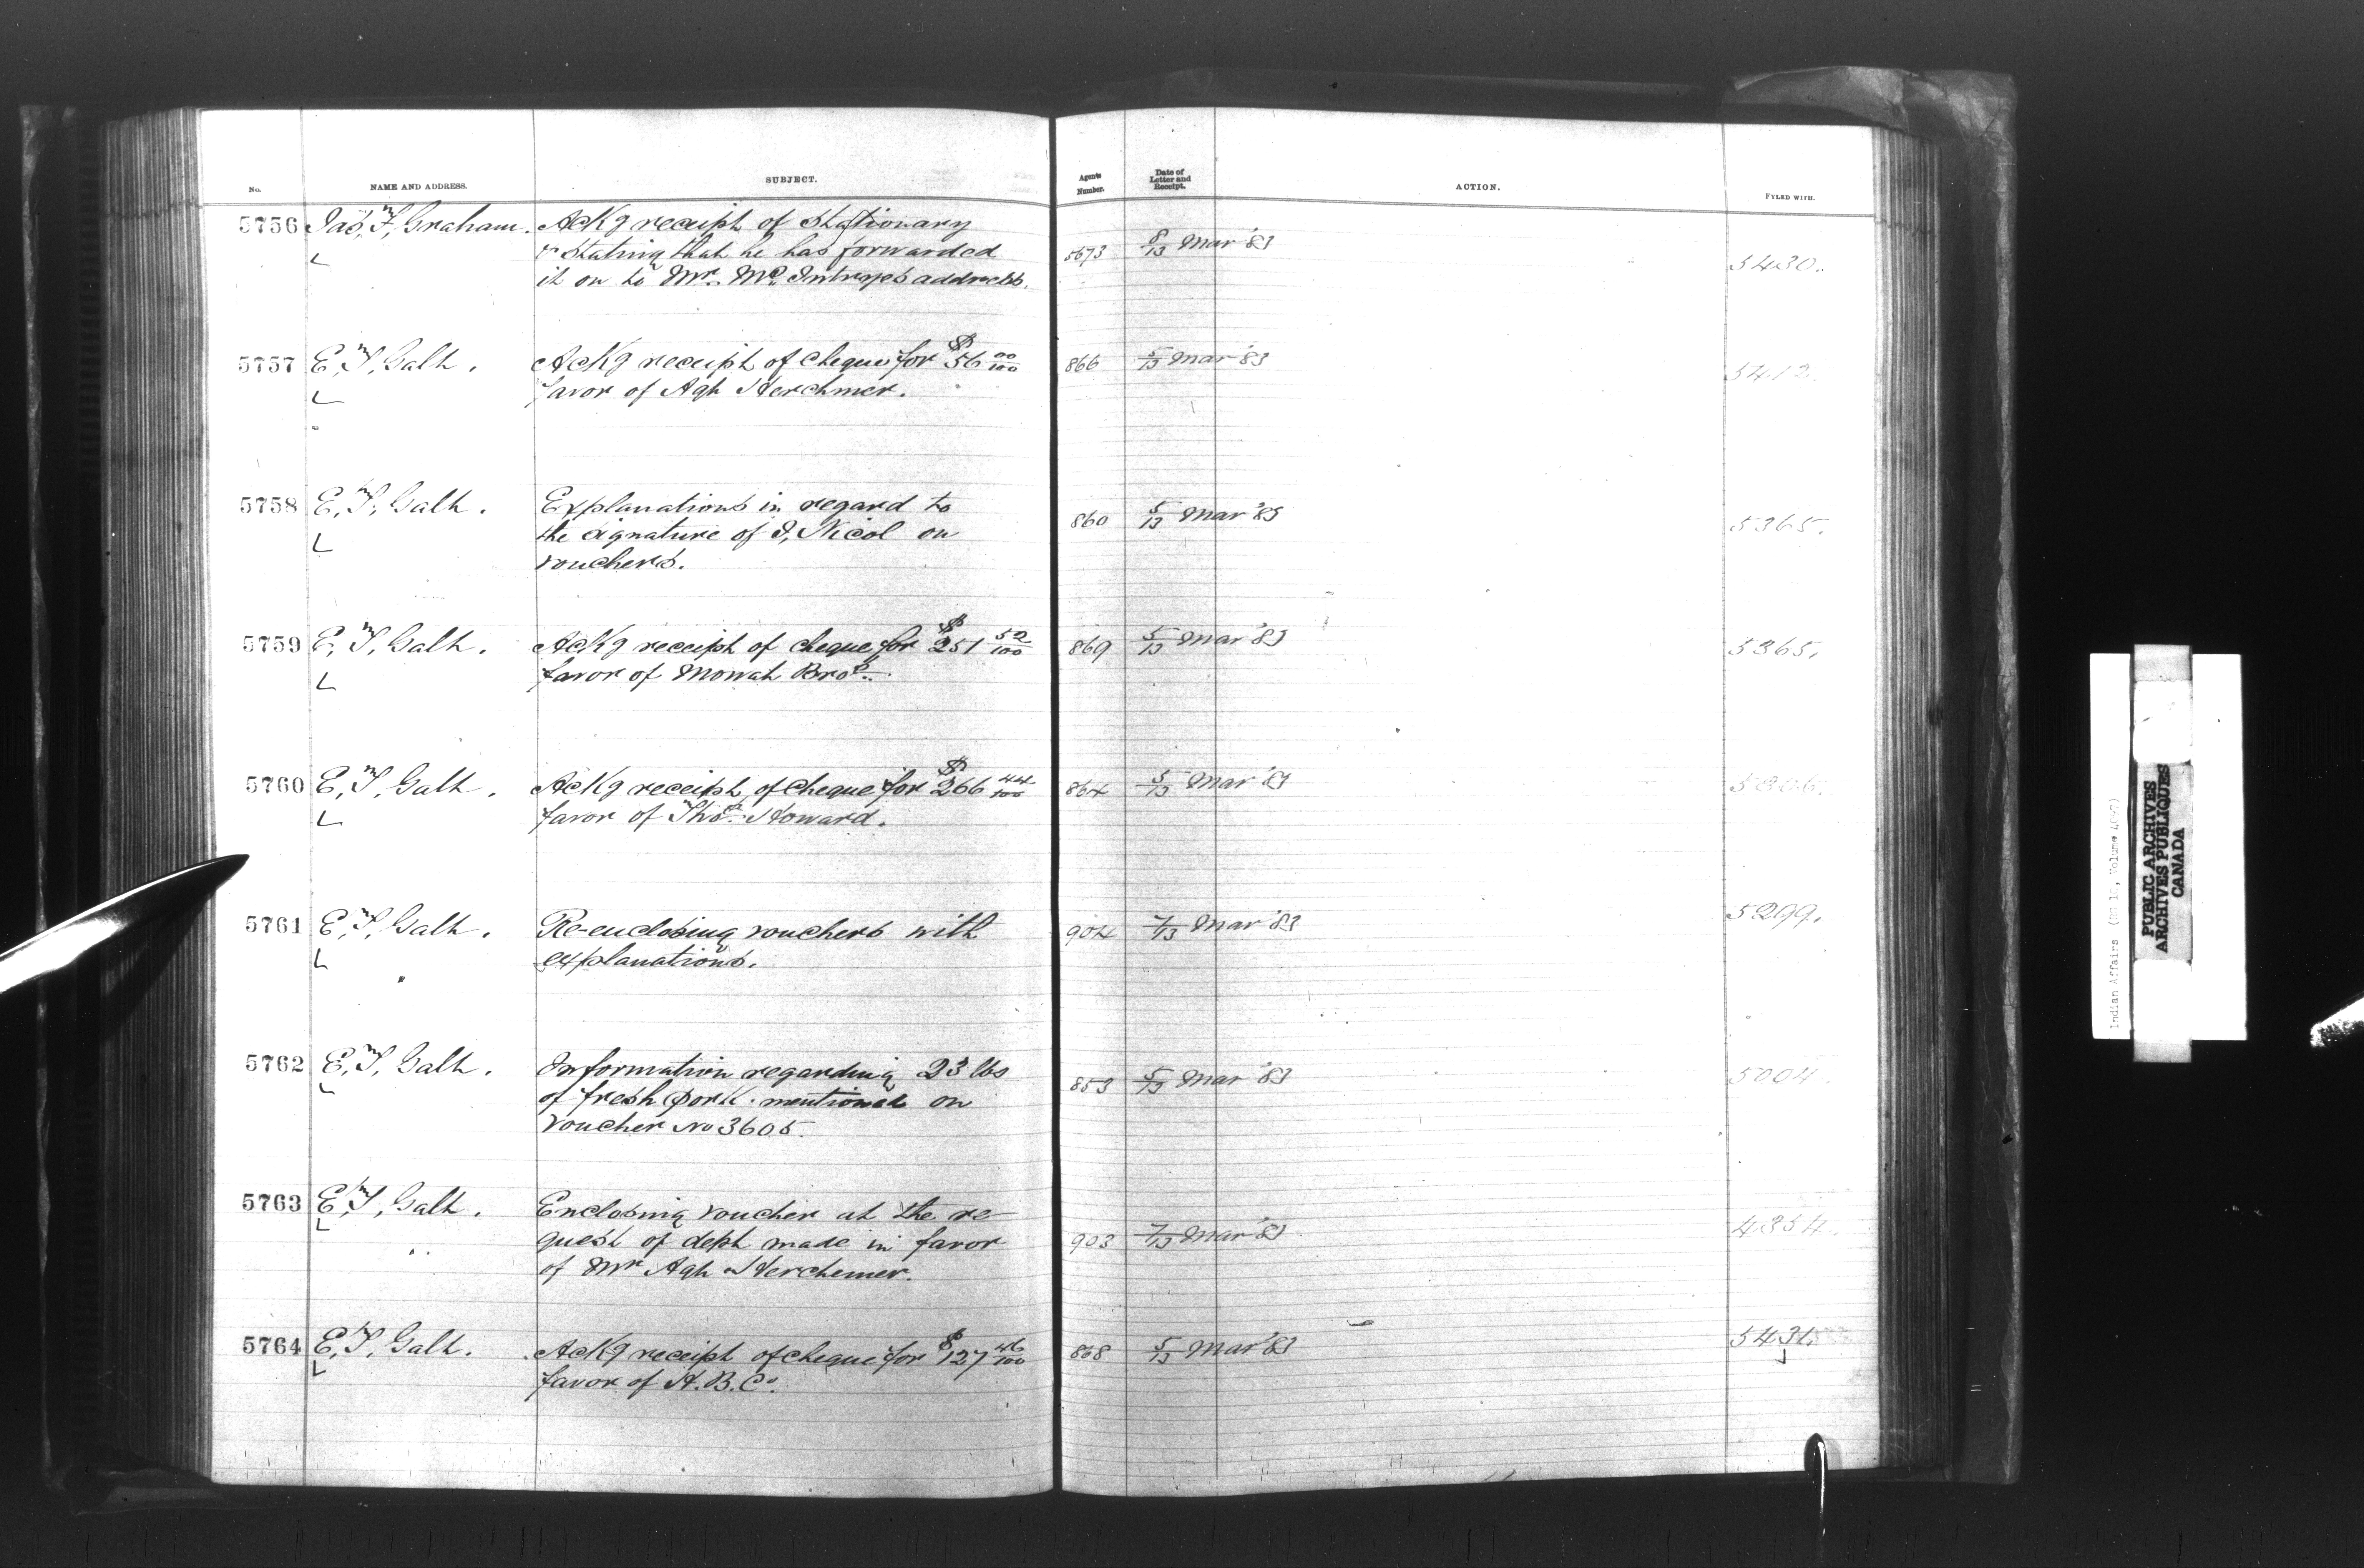 No. NAME AND ADDRESS. SUBJECT. Agents Number. Date of Letter and Receipt. ACTION. FYLED WITH.
5756 Jas, F, Graham. AcKg receipt of Stationary
& Stating that he has forwarded 5673 8/13 Mar '83 5430.
it on to Mr. Mc Intryes address.
5757 E, T, Galt. AcKg receipt of cheque for $56 00/100 866 5/13 Mar '83 5412.
favor of Agt Herchmer.
5758 E, T, Galt. Explanations in regard to
the signature of J, Nicol on 860 5/13 Mar '83 5365.
vouchers.
5759 E, T, Galt. AcKg receipt of cheque for $251 52/100 869 5/13 Mar '83 5365.
favor of Mowat Bros.
5760 E, T, Galt. AcKg receipt of cheque for $266 44/100 864 5/13 Mar '83
favor of Thos. Howard.
5761 E, T, Galt. Re-enclosing vouchers with 904 7/13 Mar '83 5299.
explanations.
5762 E, T, Galt. Information regarding 23 lbs 853 5/13 Mar '83 5004.
of fresh pork mentioned on
voucher No 3605.
5763 E, T, Galt. Enclosing voucher at the re-
quest of dept made in favor 903 7/13 Mar '83 4354.
of Mr Agt Herchemer.
5764 E, T, Galt. AcKg receipt of cheque for $127 46/100 868 5/13 Mar '83 5431.
favor of H. B. Co.
PUBLIC ARCHIVES
ARCHIVES PUBLIQUES
CANADA
Indian Affairs